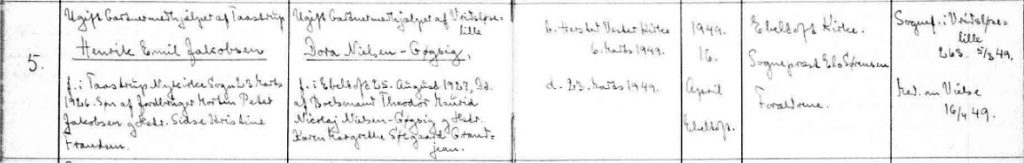 5.
Ugift Gartnermedhjælper af Taastrup
Henrik Emil Jakobsen
f. i Taastrup Nykirke Sogn 23 Marts
1926. Søn af Jordbruger Morten Peter
Jakobsen og Hstr. Sidse Kristine
Frandsen.
Ugift Gartnermedhjælper af Vridsløse-
lille
Dora Nielsen-Gøgsig,
f. i Ebeltoft 25. August 1927, Dt.
af Theodor Laurid
Nicolaj Nielsen-Gøgsig og Hstr.
Karen Margrethe Grand-
jean.
b. Vester Kirke
6. Marts 1949.
d. 23. Marts 1949.
1949.
16.
April
Ebeltoft.
Ebeltoft Kirke.
Sognepræst Elo Sørensen
Forældrene.
Sognef. i Vridsløse-
lille
263. 5/3 49.
Med. om Vielse
16/4 49.